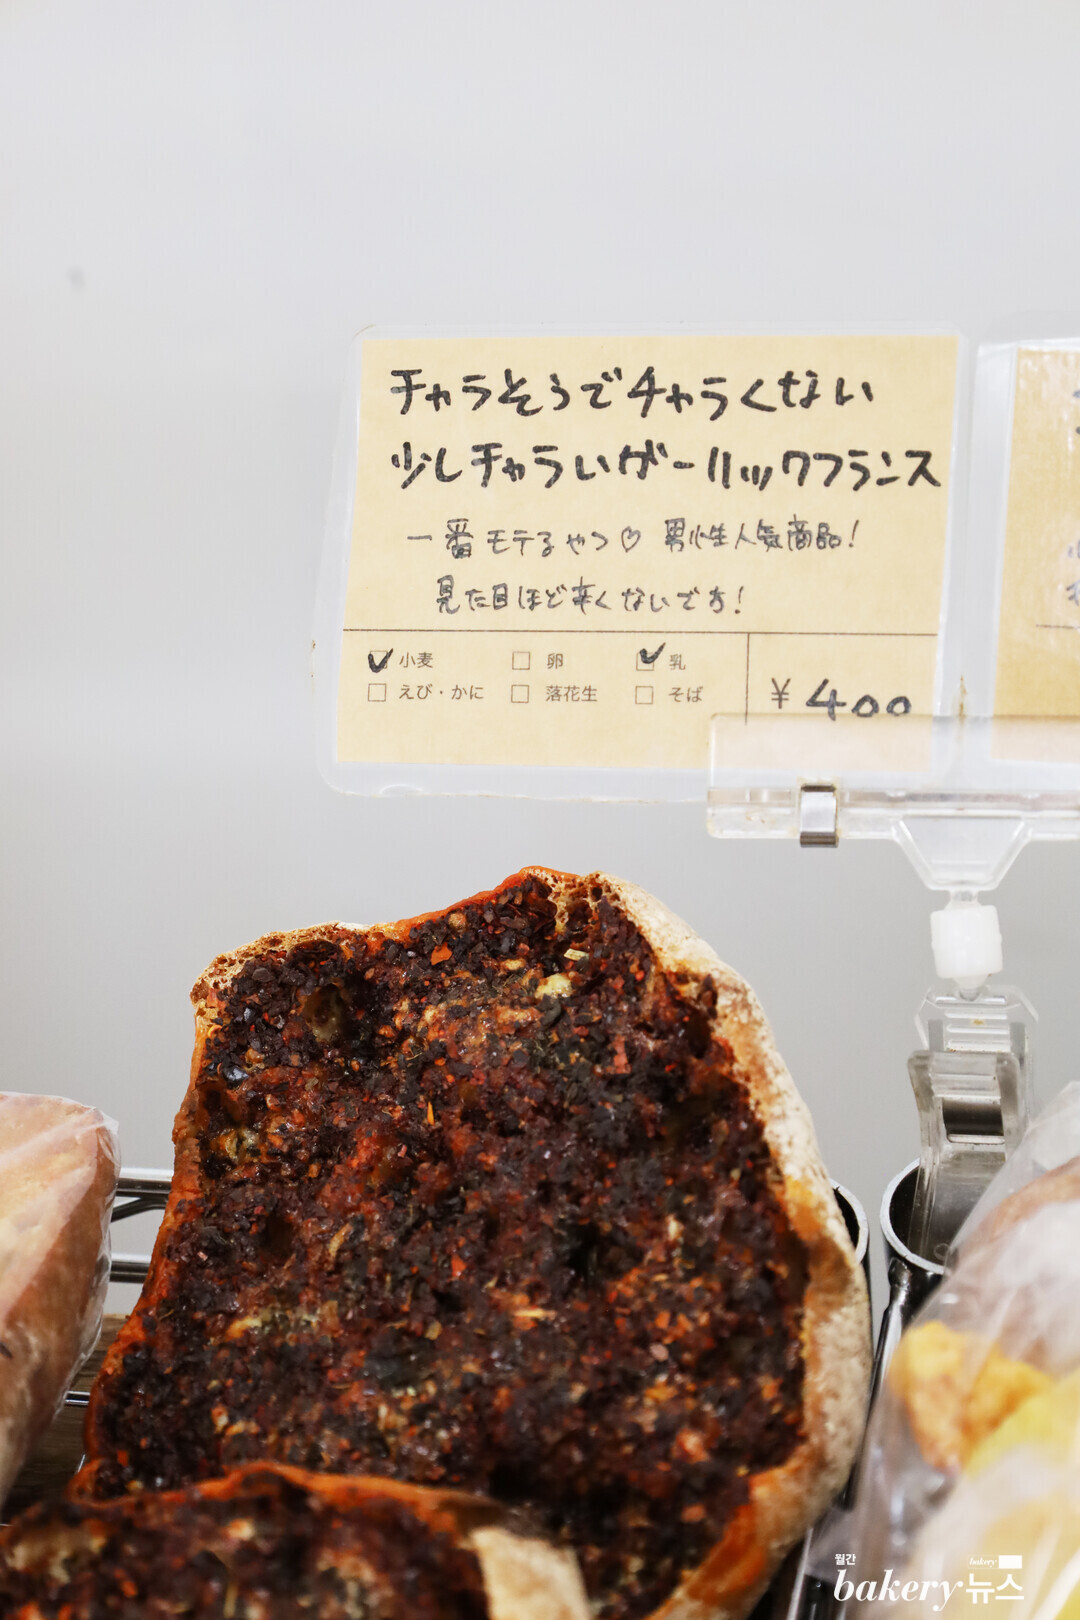 チャラそうでチャラくない
少しチャラいガーリックフランス
一番モテるやつ♡ 男性人気商品!
見た目ほど辛くないです!
☑ 小麦 □ 卵 ☑ 乳
□ えび・かに □ 落花生 □ そば
¥ 400
월간
bakery 뉴스